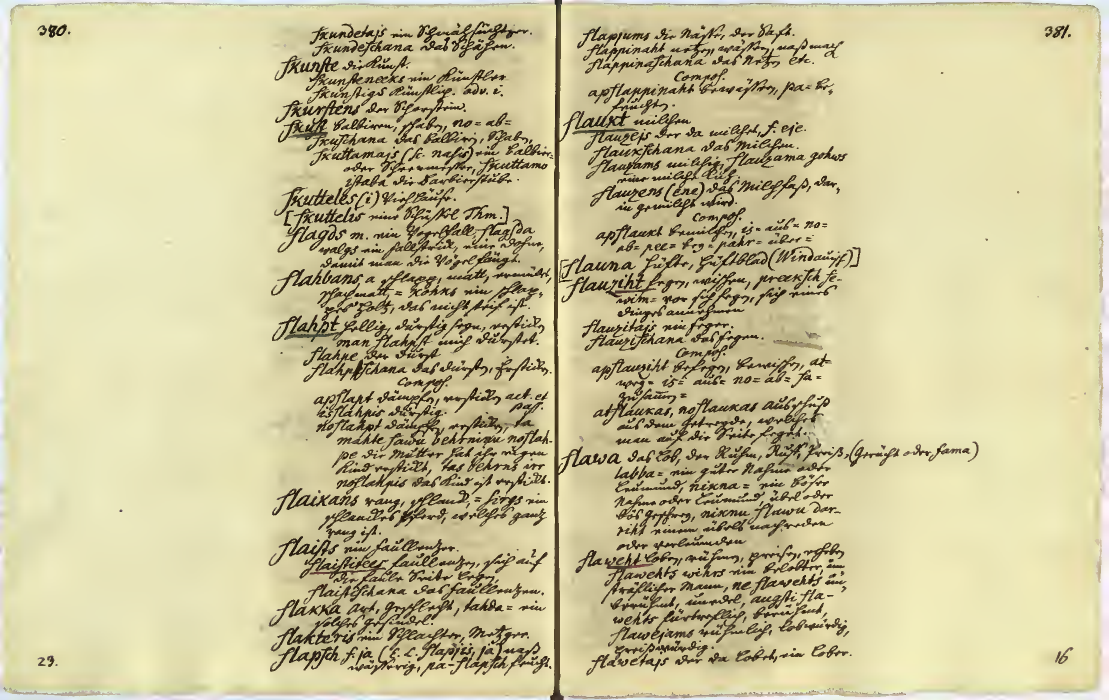 380.
skundetajs ein Schmähsüchtger.
skundeschana das Schähen.
skunste die Kunst.
skunstenecks ein Künstler
skunstigs Künstlich. adv. i.
skurstens der Schorstein.
skuht balbiren, schaben, no= ab=
skuschana das balbirn, Schaben,
skuttamajs (sc. nasis) ein balbier=
oder Scheermesser, skuttamo
istaba die Barbierstube.
skutteles (i) Viehläuse.
[skuttelis eine Schüssel Thm.]
slagds m. ein Vogelfall, slagsda
walgs ein fallstrick, eine Dohne,
damit man die Vögel fängt.
slahbans, a schlapp, matt, ermüdet,
schachmatt = kohks ein schlap=
pes Holtz, das nicht steif ist
slahpt hellig, durstig seyn, ersticken
man slahpst mich durstet.
slahpe der Durst
slahpschana das dürsten, Ersticken.
Compos.
apslapt dämpfen, ersticken act. et
isslahpis durstig. pass.
noslahpt dämpfen, ersticken, ta
mahte sawu behrninu noslah=
pe die Mutter hat ihr eigen
Kind erstickt, tas behrns irr
noslahpis das Kind ist erstickt.
slaixans rang, schland, = sirgs ein
schlandes Pferd, welches gantz
rang ist.
slaists ein faullentzer.
slaistitees faullentzen, sich auf
die faule Seite legen,
slaistischana das faullentzen.
slakka Art, Geschlecht, tahda= ein
solches gesindel.
slakteris ein Schlachter, Metzger.
slapsch f. ja (S. L. slapjis, ja) naß
wässerig, pa-slapsch feucht.
29.
381.
slapjums die Nässe, der Saft.
slappinaht netzen, wässern, naß mach
slappinaschana das Netzen etc.
Compos.
apslappinaht bewässern, pa= be=
feuchten.
slaukt milchen
slauzejs der da milchet, f. eje.
slaukschana das Milchen.
slauzams milchig, slauzama gohws
eine milche Kuh.
slauzens (ene) das Milchfaß, dar=
in gemilcht wird.
Compos.
apslaukt bemilchen, is= aus= no=
ab= pee= bey= pahr= über=
[slauna Hüfte, Hüftblad (Windausch)]
slauziht fegen, wischen, preeksch se=
wim= vor sich fegen, sich eines
dinges annehmen
slauzitajs ein feger.
slauzischana das fegen.
Compos.
apslauziht befegen, bewischen, at=
weg= is= aus= no= ab= sa=
zusamen=
atslaukas, noslaukas Ausschuß
aus dem Getreyde, welches
man auf die Seite feget.
slawa das Lob, der Ruhm, Ruff, Preiß, (Gerücht oder fama)
labba= ein guter Nahme oder
Leumund, nikna= ein böser
Nahme oder Leumund, übel oder
bös Geschrey, niknu slawu dar=
riht einem übels nachreden
oder verleumden
slaweht loben, rühmen, preisen, erheben
slawehts wihrs ein belobter, un
sträflicher Mann, ne slawehts un=
berühmt, unedel, augsti sla=
wehts fürtreflich, berühmt,
slawejams rühmlich, lobwürdig,
preißwürdig.
slawetajs der da lobet, ein Lober.
16